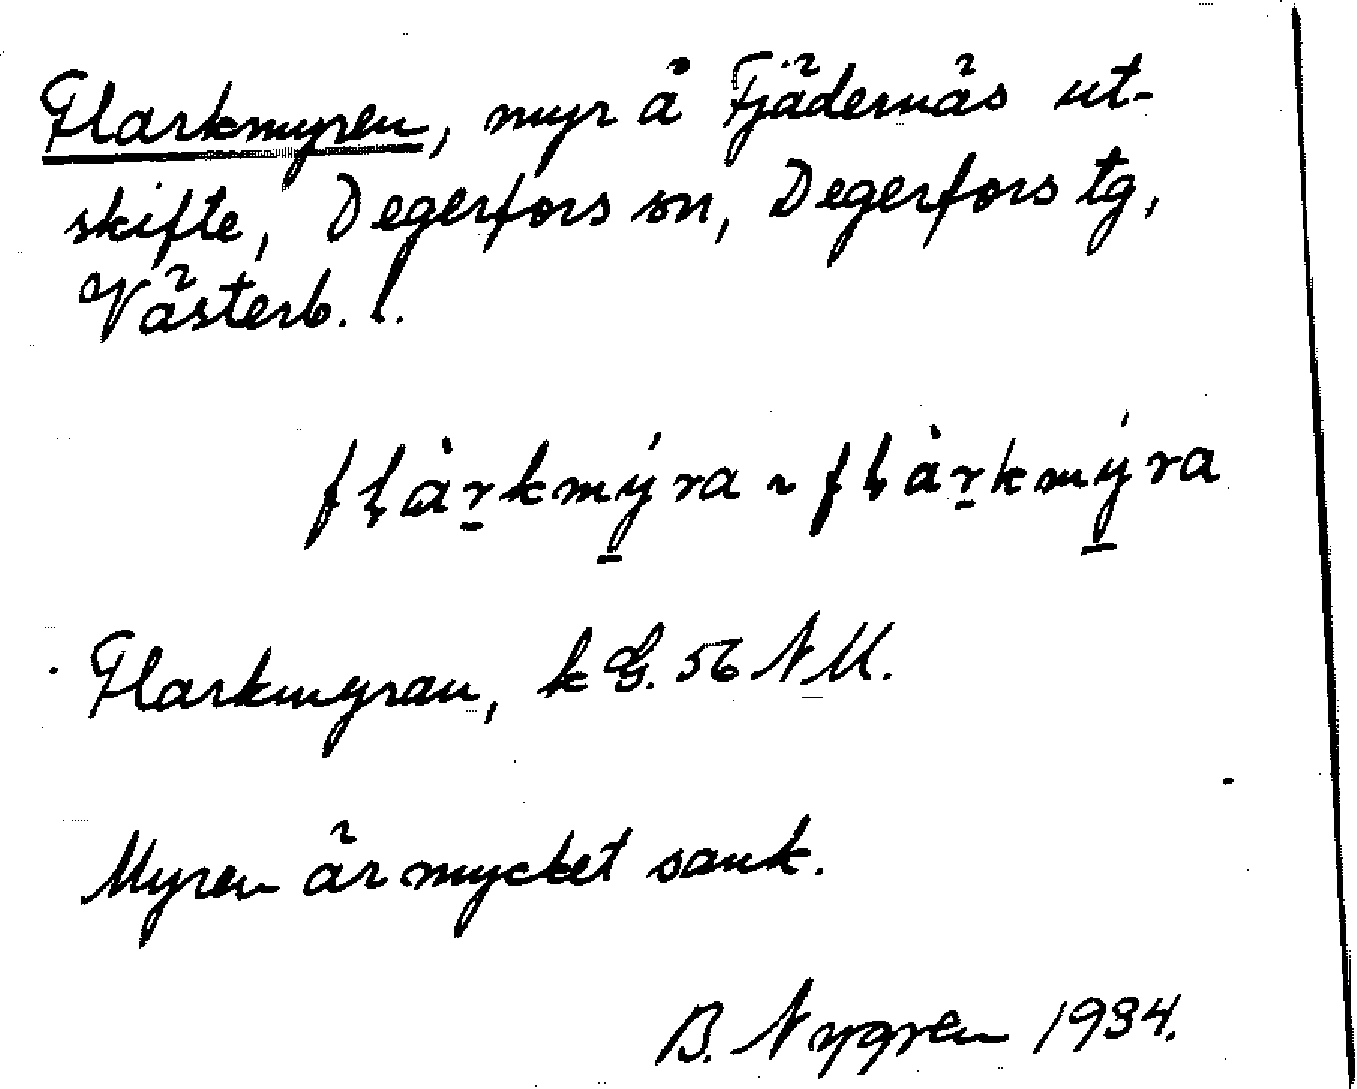 Flarkmyren, myr å Fjädernäs ut-
skifte, Degerfors sn, Degerfors tg,
Västerb. l.
fḷàr̠kmý̠ra ~ fḷàr̠kmý̠ra
Flarkmyran, k G. 56 NU.
Myren är mycket sank.
B. Nygren 1934.